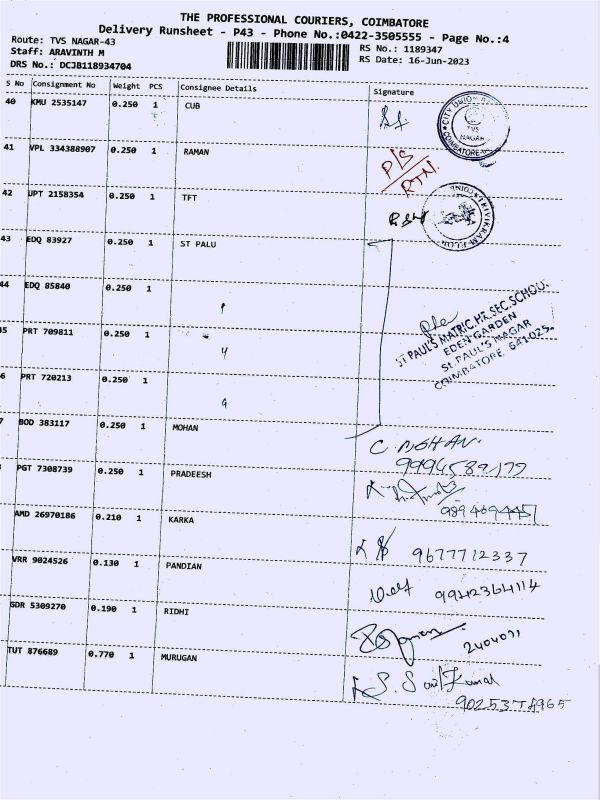 THE PROFESSIONAL COURIERS, COIMBATORE
Delivery Runsheet - P43 - Phone No.:0422-3505555 - Page No.:4
Route: TVS NAGAR-43
Staff: ARAVINTH M
DRS No.: DCJB118934704
RS No.: 1189347
RS Date: 16-Jun-2023
S No Consignment No Weight PCS Consignee Details Signature
40 KMU 2535147 0.250 1 CUB
CITY UNION
TVS
NAGAR
COIMBATORE
41 VPL 334388907 0.250 1 RAMAN
P/S
RTN.
42 UPT 2158354 0.250 1 TFT
43 EDQ 83927 0.250 1 ST PALU
44 EDQ 85840 0.250 1
ST PAUL'S MATRIC.HR.SEC.SCHOOL
EDEN GARDEN
ST.PAUL'S NAGAR
COIMBATORE 641025.
5 PRT 709811 0.250 1 4
6 PRT 720213 0.250 1
7 BOD 383117 0.250 1 MOHAN
C. MOHAN.
9994589177
PGT 7308739 0.250 1 PRADEESH
989469445
AMD 26970186 0.210 1 KARKA
9677712337
VRR 9024526 0.130 1 PANDIAN
9942364114
GDR 5309270 0.190 1 RIDHI
2404071
TUT 876689 0.770 1 MURUGAN